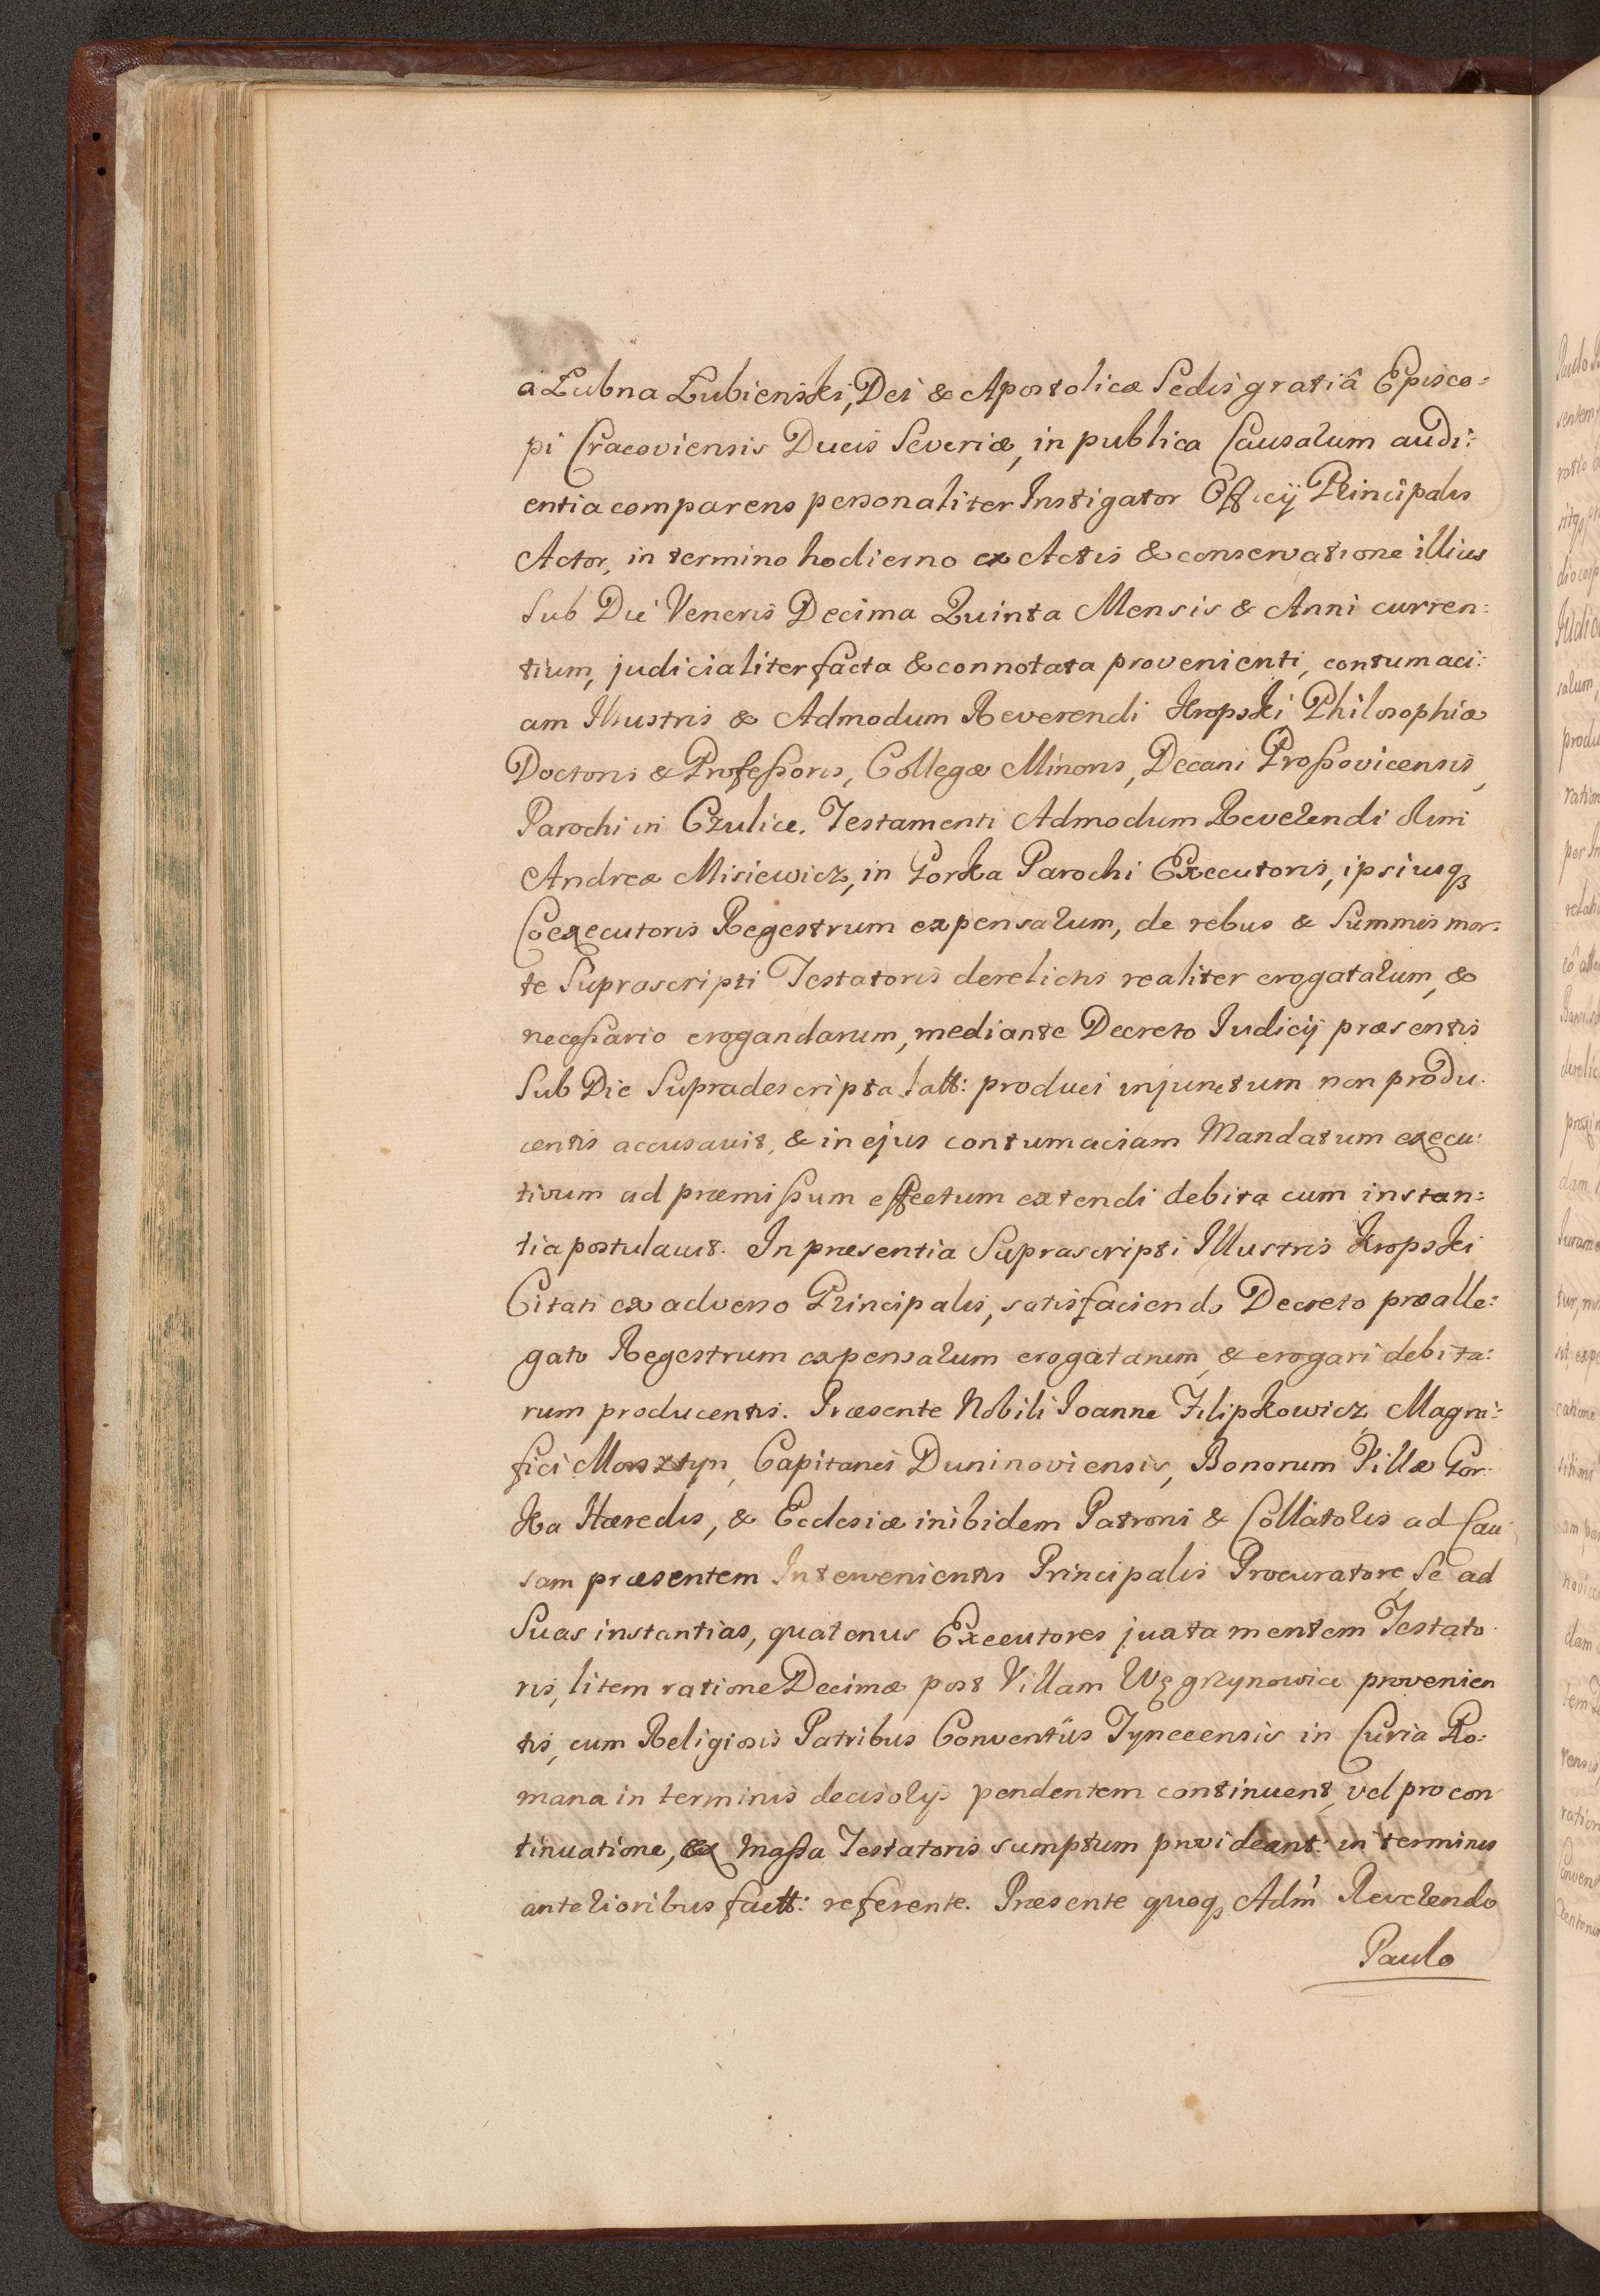 a Łubna Łubienski, Dei & Apostolicæ Sedis gratiâ Episco:
pi Cracoviensis Ducis Severiæ, in publica Causarum audi:
entia comparens personaliter Instigator Officij Principalis
Actor, in termino hodierno ex Actis & conservatione illius
Sub Die Veneris Decima Quinta Mensis & Anni curren:
tium, judicialiter facta & connotata provenienti, contumaci:
am Illustris & Admodum Reverendi Kropski Philosophiæ
Doctoris & Professoris, Collegæ Minoris, Decani Prossovicensis,
Parochi in Czulice, Testamenti Admodum Reverendi olim
Andreæ Misiewicz, in Gorka Parochi Executoris, ipsiusq3
Coexecutoris Regestrum expensarum, de rebus & Summis mor:
te Suprascripti Testatoris derelictis realiter erogatarum, &
necessario erogandarum, mediante Decreto Iudicij præsentis
Sub Die Supradescripta latt: produci injunctum non produ:
centis accusavit, & in ejus contumaciam Mandatum execu:
tivum ad præmissum effectum extendi debita cum instan:
tia postulavit. In præsentia Suprascripti Illustris Kropski
Citati ex adverso Principalis, satisfaciendo Decreto præalle:
gato Regestrum expensarum erogatarum, & erogari debita:
rum producentis. Præsente Nobili Joanne Filipkowicz Magni:
fici Morsztyn, Capitanei Duninoviensis, Bonorum Villæ Gor:
ka Hæredis, & Ecclesiæ inibidem Patroni & Collatoris ad Cau:
sam præsentem Intervenientis Principalis Procuratore, Se ad
Suas instantias, quatenus Executores juxta mentem Testato:
ris, litem ratione Decimæ post Villam Węgrzynowice provenien
tis, cum Religiosis Patribus Conventûs Tynecensis in Curia Ro:
mana in terminis decisorijs pendentem continuent, vel pro con
tinuatione, ex Massa Testatoris sumptum provideant: in terminis
anterioribus factt: referente. Præsente quoq3 Adm Reverendo
Paulo